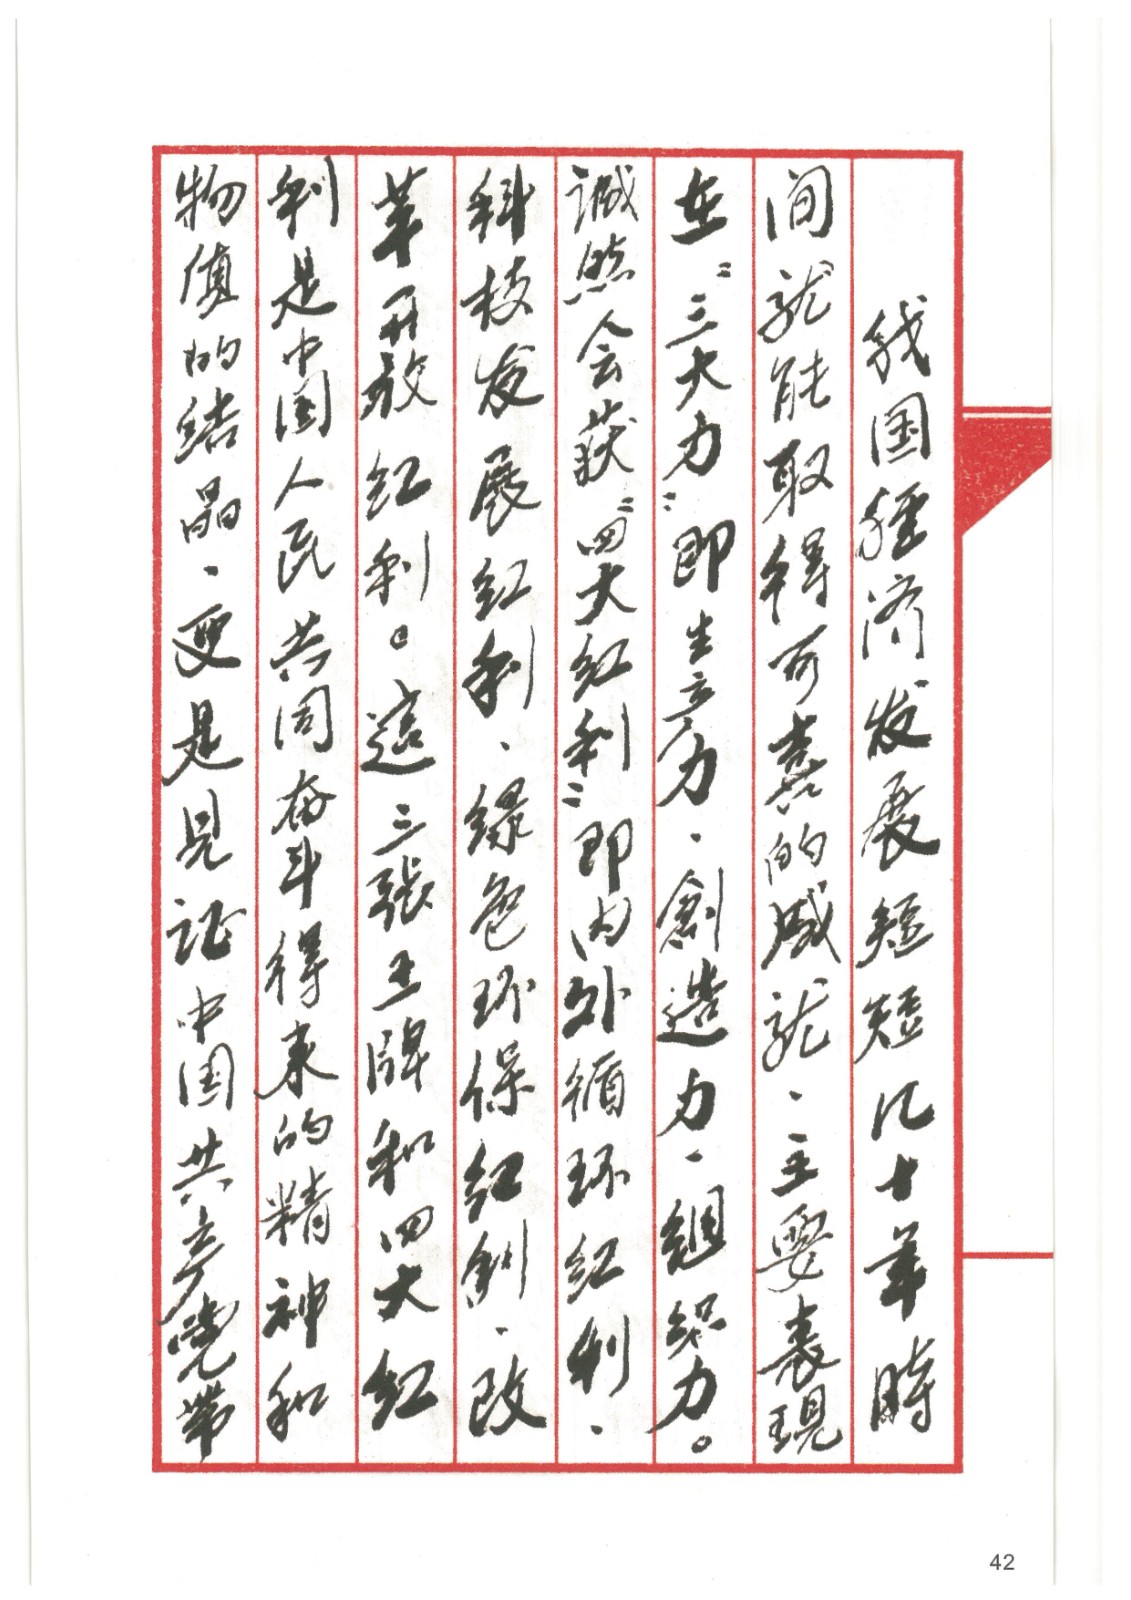 我国经济发展短短几十年時
间就能取得可喜的成就、主要表現
在“三大力”即生产力、創造力、組织力。
诚然会获“四大红利”即内外循环红利、
科技发展红利、绿色环保红利、改
革开放红利。這三張王牌和四大红
利是中国人民共同奋斗得来的精神和
物质的结晶、更是見证中国共产党带
42